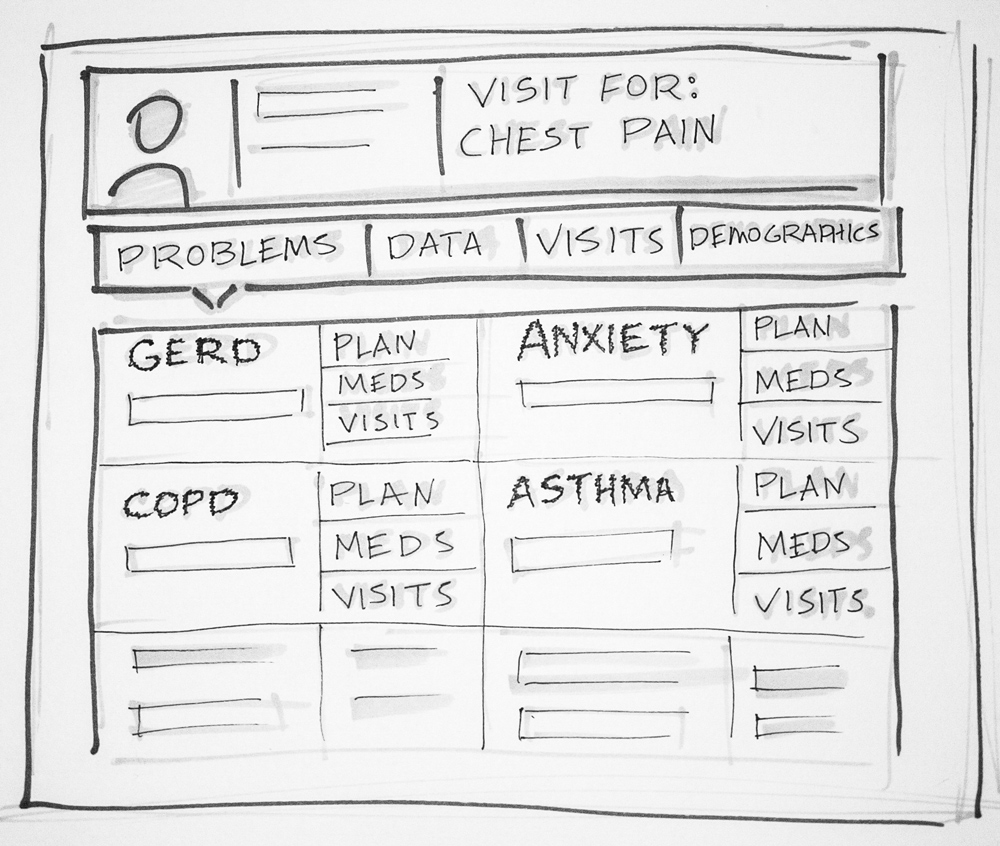 VISIT FOR:
CHEST PAIN
PROBLEMS
DATA
VISITS
DEMOGRAPHICS
GERD
PLAN
MEDS
VISITS
ANXIETY
PLAN
MEDS
VISITS
COPD
PLAN
MEDS
VISITS
ASTHMA
PLAN
MEDS
VISITS